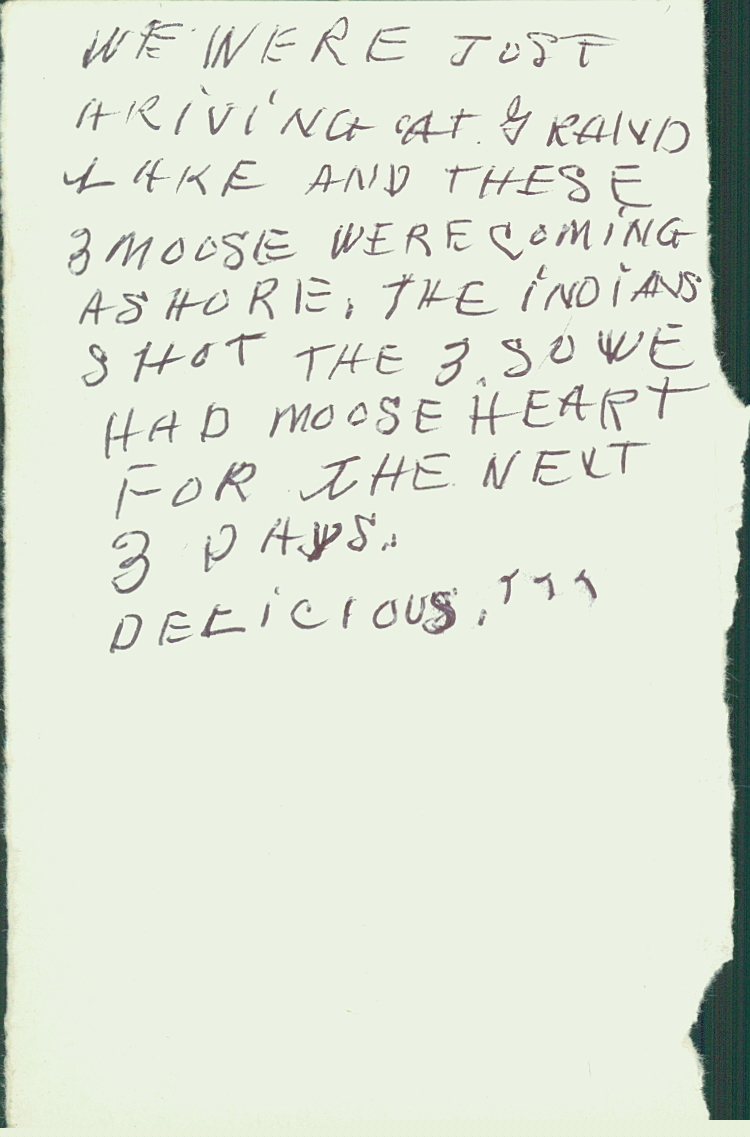 WE WERE JUST
ARIVING AT GRAND
LAKE AND THESE
3 MOOSE WERE COMING
ASHORE. THE INDIANS
SHOT THE 3. SO WE
HAD MOOSE HEART
FOR THE NEXT
3 DAYS.
DELICIOUS.